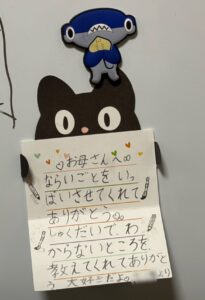 お母さんへ
ならいごとをいっ
ぱいさせてくれて
ありがとう。
しゅくだいで、わ
からないところを、
教えてくれてありがと
う 大好きだよ。 より